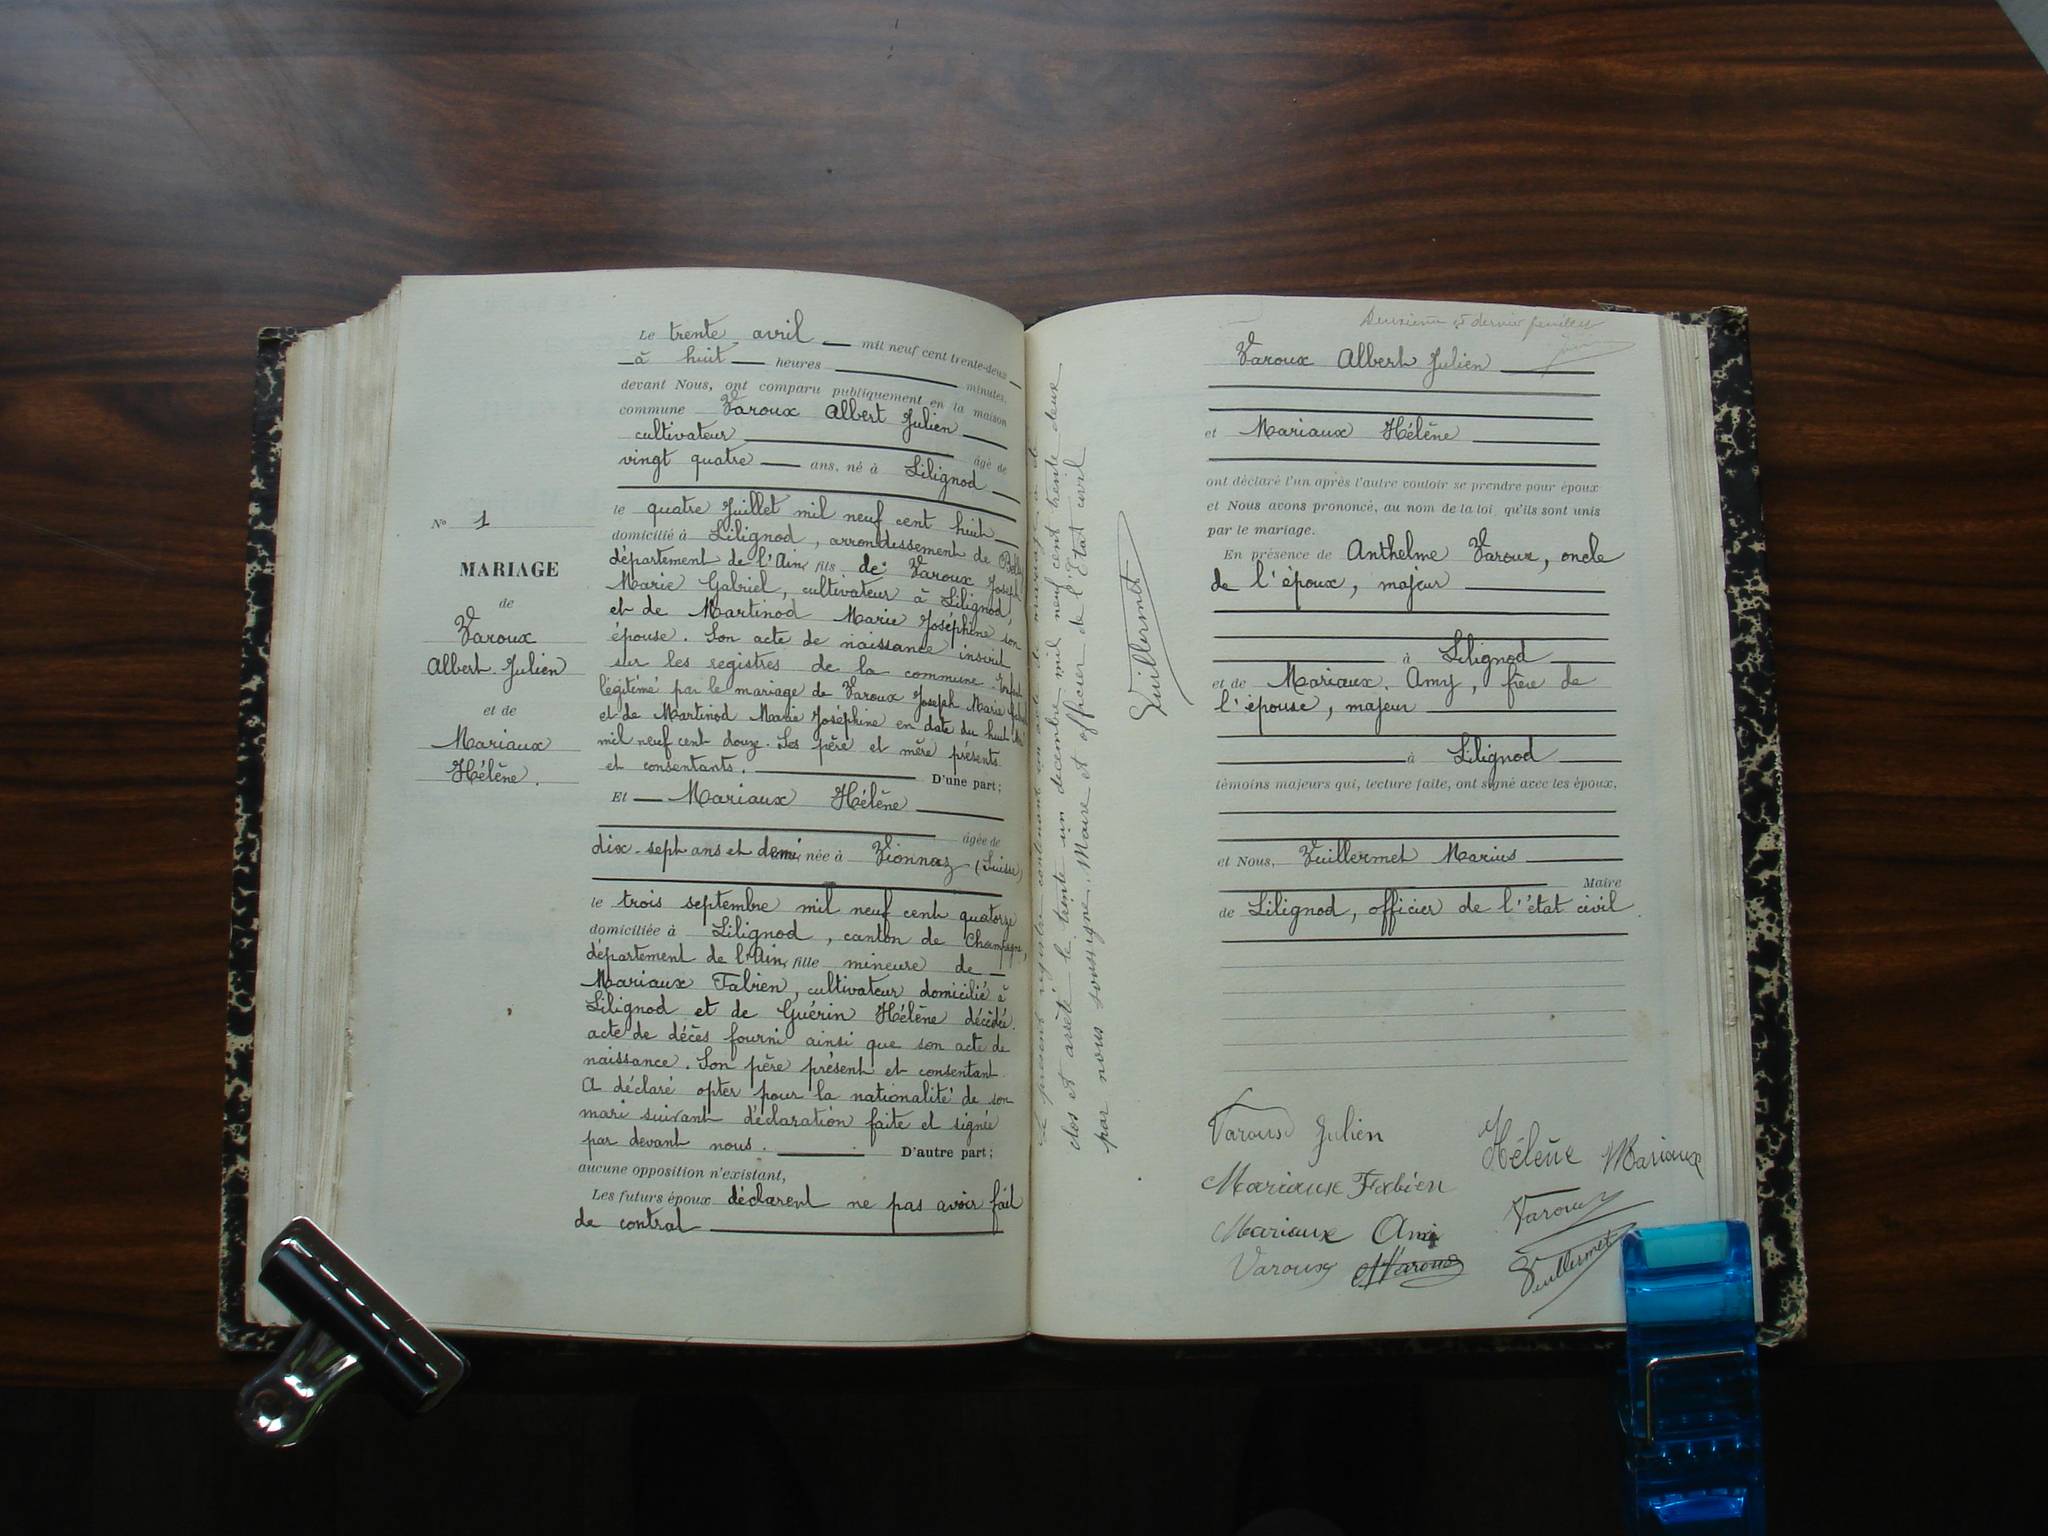 N° 1
MARIAGE
de
Varoux
Albert Julien
et de
Mariaux
Hélène.
Le trente avril mil neuf cent trente-deux
à huit heures minutes,
devant Nous, ont comparu publiquement en la maison
commune Varoux Albert Julien
cultivateur âgé de
vingt quatre ans, né à Lilignod
le quatre Juillet mil neuf cent huit
domicilié à Lilignod, arrondissement de
département de l'Ain, fils de Varoux Joseph
Marie Gabriel, cultivateur à Lilignod
et de Martinod Marie Joséphine son
épouse. Son acte de naissance inscrit
sur les registres de la commune.
légitimé par le mariage de Varoux Joseph Marie
et de Martinod Marie Joséphine en date du huit
mil neuf cent douze. Les père et mère présents
et consentants. D'une part;
Et Mariaux Hélène
âgée de
dix-sept ans et demi, née à Vionnaz (Suisse)
le trois septembre mil neuf cent quatorze
domiciliée à Lilignod, canton de Champagne,
département de l'Ain, fille mineure de
Mariaux Fabien, cultivateur domicilié à
Lilignod et de Guérin Hélène décédée
acte de décès fourni ainsi que son acte de
naissance. Son père présent et consentant
A déclaré opter pour la nationalité de son
mari suivant déclaration faite et signée
par devant nous. D'autre part;
aucune opposition n'existant,
Les futurs époux déclarent ne pas avoir fait
de contrat
Le présent registre contenant un acte de mariage a été
clos et arrêté le trente un décembre mil neuf cent trente deux
par nous soussigné, Maire et officier de l'Etat civil
Vuillermet
Deuxième et dernier feuillet
Varoux Albert Julien
et Mariaux Hélène
ont déclaré l'un après l'autre vouloir se prendre pour époux
et Nous avons prononcé, au nom de la loi, qu'ils sont unis
par le mariage.
En présence de Anthelme Varoux, oncle
de l'époux, majeur
à Lilignod
et de Mariaux Amy, frère de
l'épouse, majeur
à Lilignod
témoins majeurs qui, lecture faite, ont signé avec les époux,
et Nous, Vuillermet Marius
Maire
de Lilignod, officier de l'état civil
Varoux Julien Hélène Mariaux
Mariaux Fabien
Varoux
Mariaux Ami
Varoux
Vuillermet